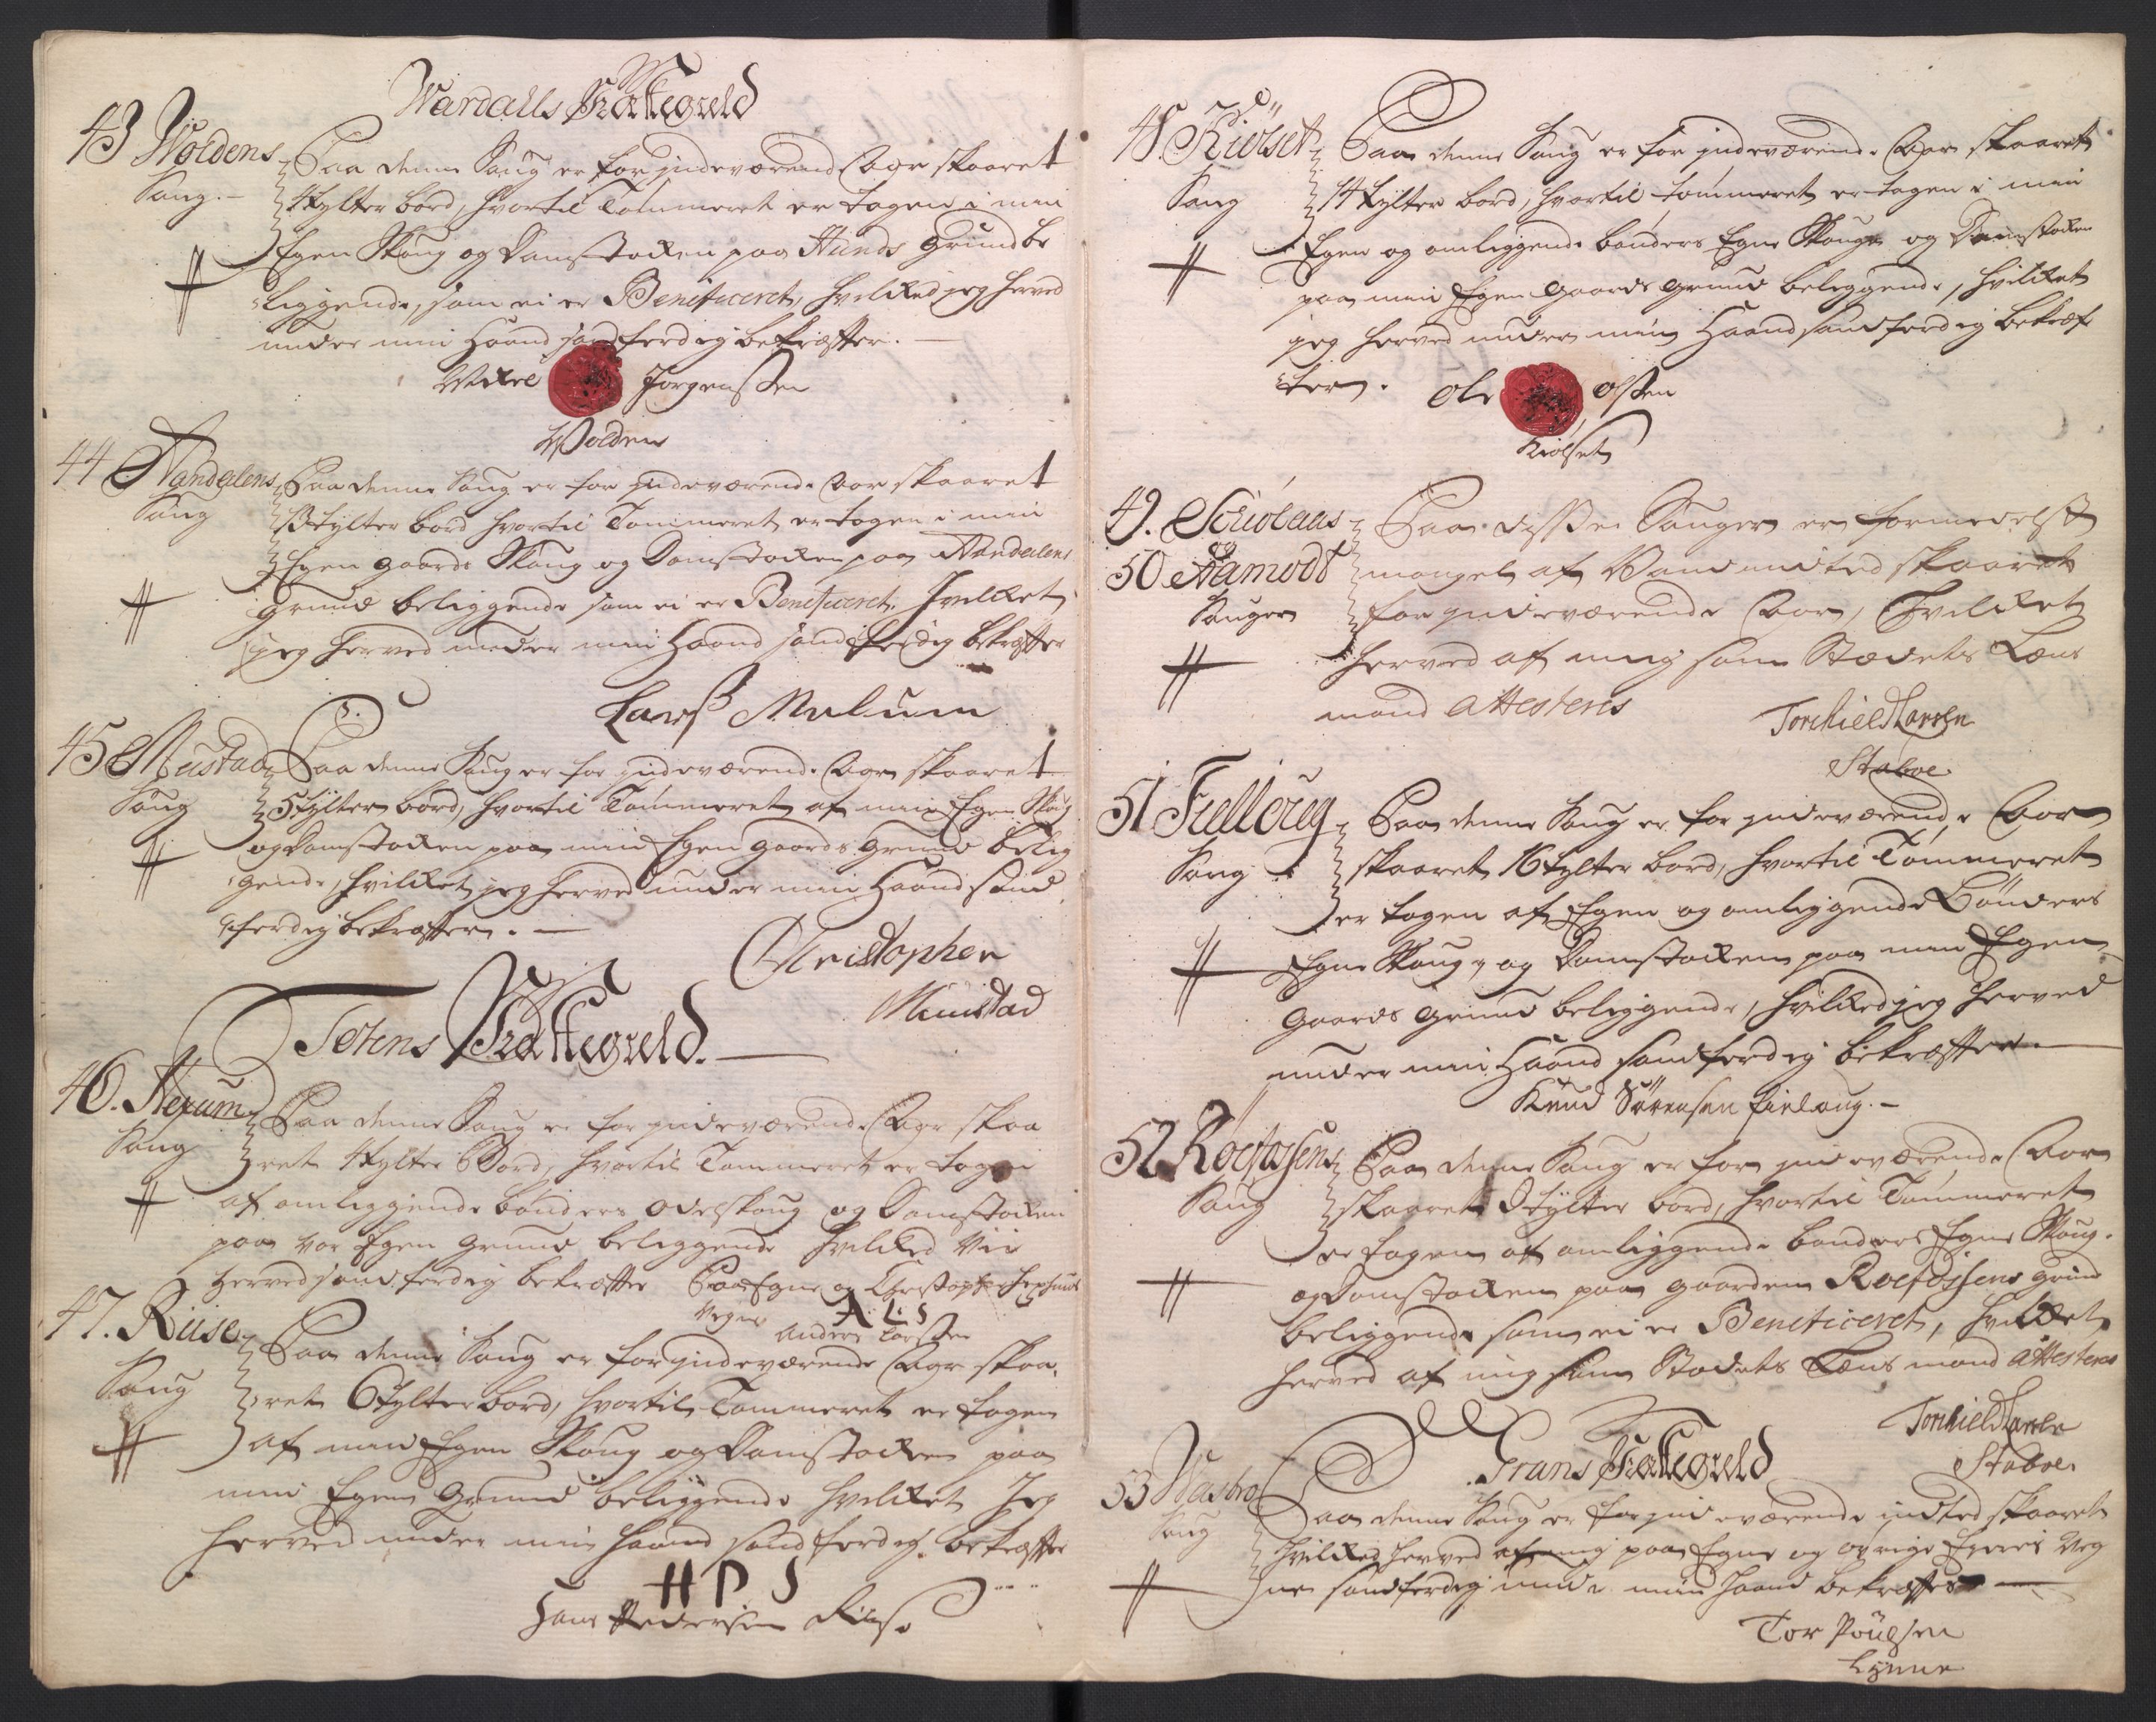 Wardalls Præstegield
43 Woldens Paa denne Saug er for indeværende Aar skaaret
Saug. 4 tylter bord, hvortil Tømmeret er tagen i min
Egen Skoug og Damstocken paa Hunds Grund be
liggende, som ei er Beneficeret, hvilcked jeg herved
under min Haand sandferdig bekræffter.
Mickel Jorgenssen
Wolden
44 Nandalens Paa denne Saug er for indeværende Aar skaaret
Saug tylter bord hvortil Tømmeret er tagen i min
Egen gaards Skoug og Damstocken paa Nandalens
grund beliggende som ei er Beneficeret. Hvilcket
jeg herved under min Haand sandferdig bekræffter
Larß Melum
45 Mustad Paa denne Saug er for indeværende Aar skaaret
Saug 5 tylter bord, hvortil Tømmeret af min Egen Skoug
og Damstocken paa min Egen gaards Grund belig
gende, hvilcket jeg herved under min Haand sand
ferdig bekræffter.
Christopher
Muustad
Totens Præstegield.
46. Hexum Paa denne Saug er for indeværende Aar skaa
Saug ret 4 tylter Bord, hvortil Tømmeret er tagen
af omliggende bønders Odelskoug og Damstocken
paa vor Egen Grund beliggende hvilcked Vii
herved sandferdig bekræffter Paa Egne og Christopher
Vegne A L S
Anders Larssen
47. Riise Paa denne Saug er for indeværende Aar skaa
Saug ret 6 tylter bord, hvortil Tømmeret er tagen
af min Egen Skoug og Damstocken paa
min Egen Grund beliggende hvilcket Jeg
herved under min Haand sandferdig bekræffter
H P S
Hans Pedersen Riise
48. Kiølset Paa denne Saug er for indeværende Aar skaaret
Saug 14 tylter bord, hvortil tømmeret er tagen i min
Egen og omliggende bønders Egne Skouge og Damstocken
paa min Egen Gaards grund beliggende, hvilcket
jeg herved under min Haand sandferdig bekræf
ter. Ole Olssen
Kiølset
49. og Paa disse Sauger er formedelst
50 Aamodt mangel af Vand intted skaaret
Sauger for indeværende Aar, Hvilcket
herved af mig som Stædets Læns
mand attesteres
Torchield Larsen
Staboe
51 Fielloug Paa denne Saug er for indeværende Aar
Saug skaaret 16 tylter bord, hvortil Tømmeret
er tagen af Egen og omliggende Bønders
Egne Skoug og Damstocken paa min Egen
Gaards grund beliggende, hvilcked jeg herved
under min Haand sandferdig bekræffter.
Knud Sørensen Fieloug.
52 Roefossens Paa denne Saug er for indeværende Aar
Saug skaaret tylter bord, hvortil Tømmeret
er tagen af omliggende bønders Egne Skoug.
og Damstocken paa gaarden Roefossens grund
beliggende som ei er Beneficeret, hvilcket
herved af mig som Stædets Læns mand attesteres
Torchield Larsen
Staboe.
Grans Præstegield
53 Paa denne Saug er for indeværende intted skaaret
Saug hvilcked herved af mig paa Egne og øvrige Eyeres Veg
ne sandferdig under min Haand bekræfftes
Tor Poulsen
Lynne